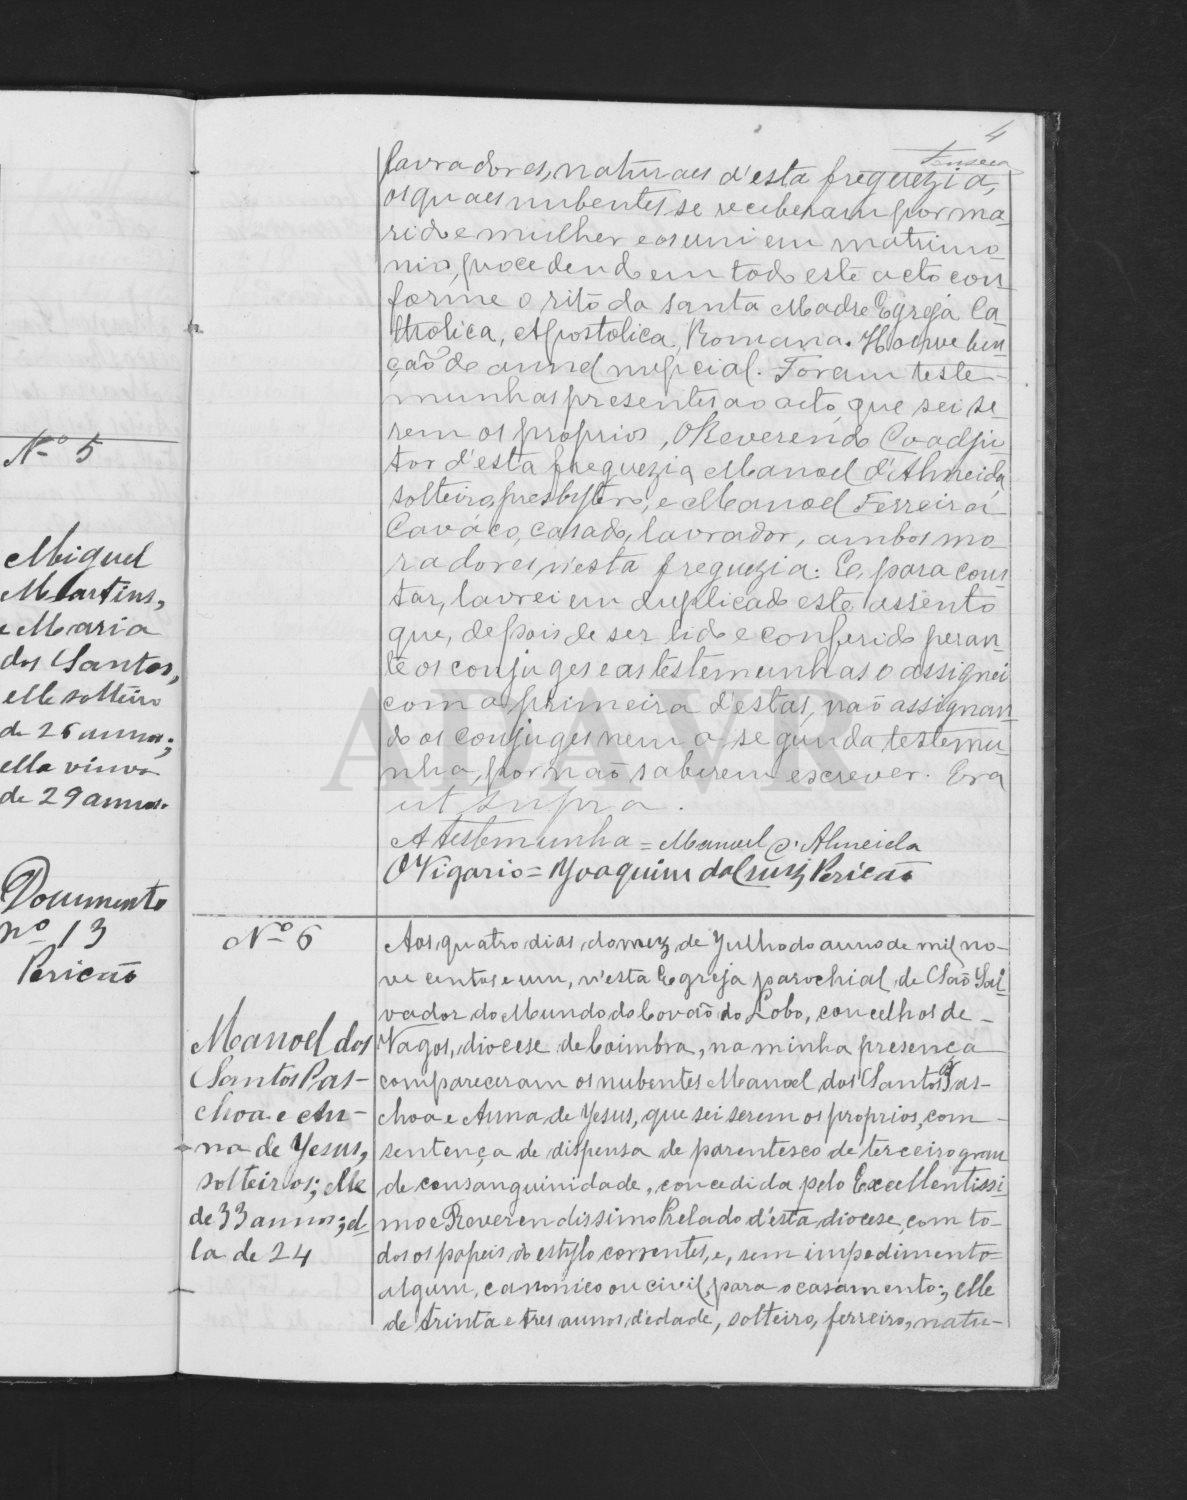 4
Fonseca
Nº 5
Miguel
Martins,
e Maria
dos Santos,
elle solteiro
de 26 annos;
ella viuva
de 29 annos.
Documento
nº 13
Pericão
lavradores, naturaes d'esta freguezia,
os quaes nubentes se receberam por ma-
rido e mulher e os uni em matrimo-
nio, procedendo em todo este acto con-
forme o rito da Santa Madre Egreja Ca-
tholica, Apostolica, Romana. Houve ben-
ção do annel nupcial. Foram teste-
munhas presentes ao acto, que sei se-
rem os proprios, O Reverendo Coadju-
tor d'esta freguezia Manoel d'Almeida,
solteiro, presbytero, e Manoel Ferreira
Caváco, casado, lavrador, ambos mo-
radores n'esta freguezia. E, para cons-
tar, lavrei em duplicado este assento
que, depois de ser lido e conferido peran-
te os conjuges e as testemunhas o assignei
com a primeira d'estas, não assignan-
do os conjuges nem a segunda testemu-
nha, por não saberem escrever. Era
ut supra.
A testemunha = Manuel d'Almeida
O Vigario = Joaquim da Cruz Pericão
Nº 6
Manoel dos
Santos Pas-
choa e An-
na de Jesus,
solteiros; elle
de 33 annos; el-
la de 24
Aos quatro dias do mez de Julho do anno de mil no-
ve centos e um, n'esta Egreja parochial de São Sal-
vador do Mundo do Covão do Lobo, concelhos de
Vagos, diocese de Coimbra, na minha presença
compareceram os nubentes Manoel dos Santos Pas-
choa e Anna de Jesus, que sei serem os proprios, com
sentença de dispensa de parentesco de terceiro grau
de consanguinidade, concedida pelo Excellentissi-
mo e Reverendissimo Prelado d'esta diocese, com to-
dos os papeis do estylo correntes, e, sem impedimento
algum, canonico ou civil, para o casamento; elle
de trinta e tres annos d'edade, solteiro, ferreiro, natu-
ADAVR